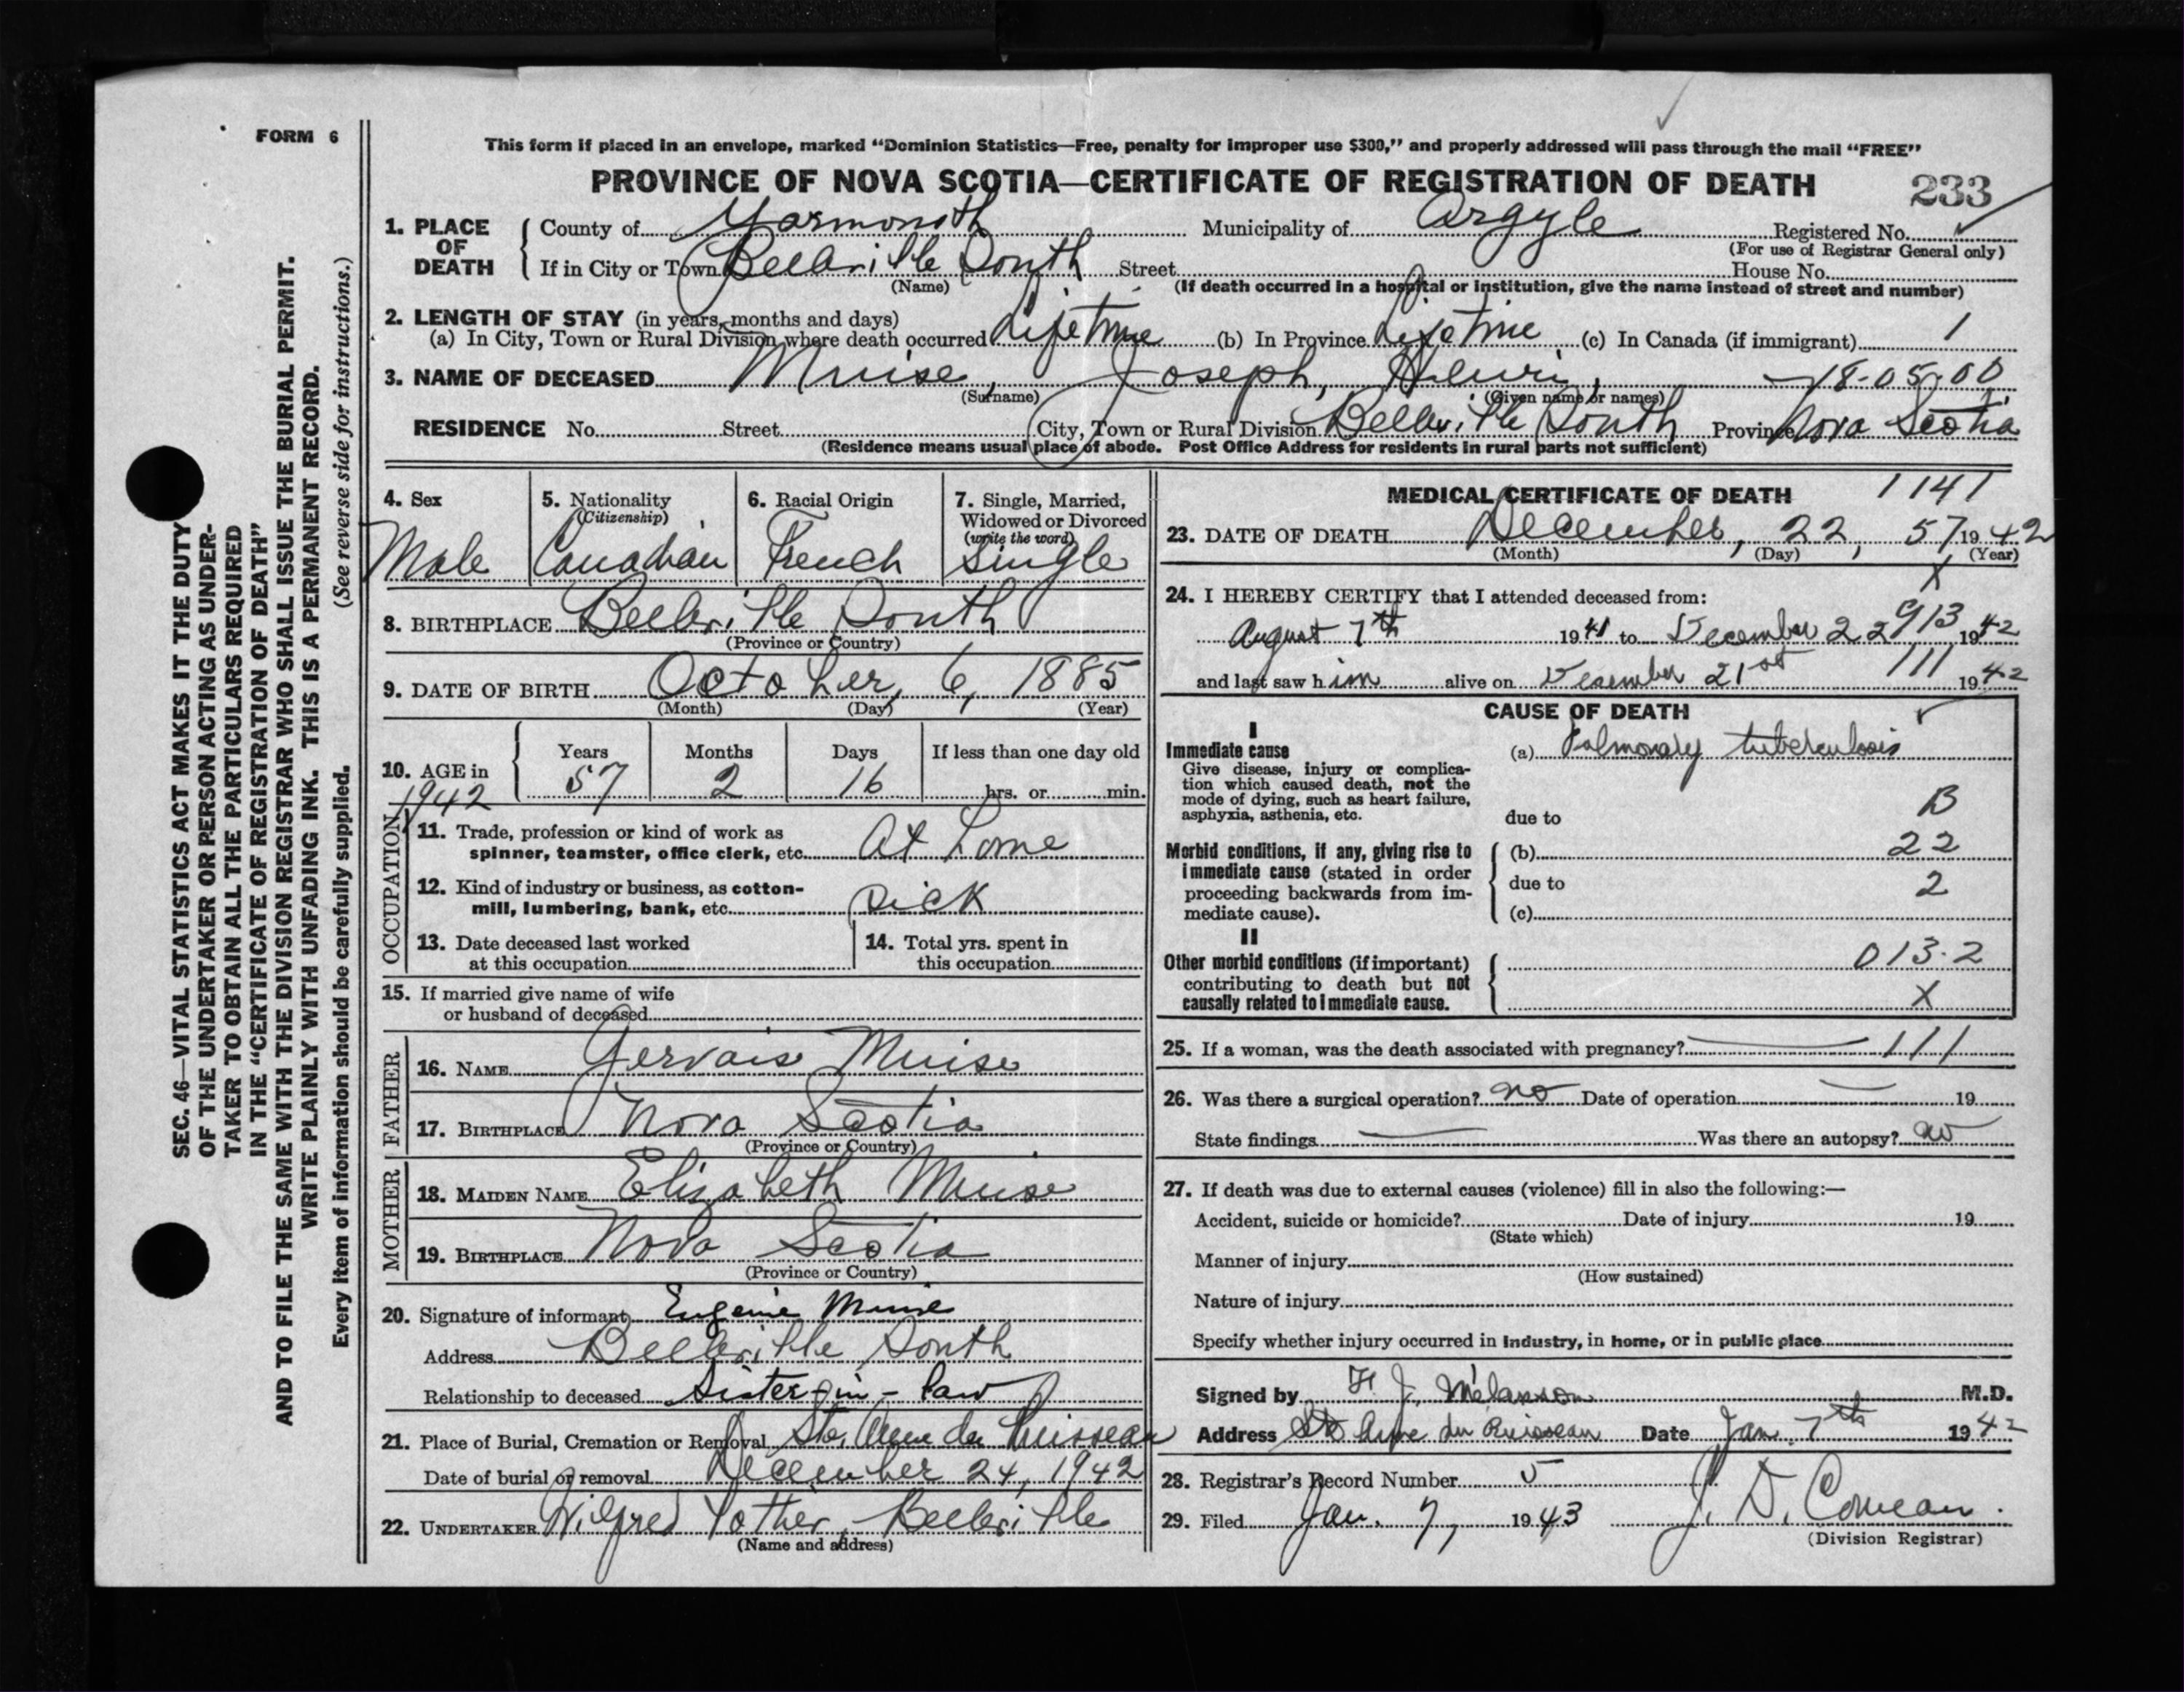 FORM 6
This form if placed in an envelope, marked "Dominion Statistics—Free, penalty for improper use $300," and properly addressed will pass through the mail "FREE"
PROVINCE OF NOVA SCOTIA—CERTIFICATE OF REGISTRATION OF DEATH 233
1. PLACE OF DEATH County of Yarmouth Municipality of Argyle Registered No.
(For use of Registrar General only)
If in City or Town Belleville South Street House No.
(Name) (If death occurred in a hospital or institution, give the name instead of street and number)
2. LENGTH OF STAY (in years, months and days)
(a) In City, Town or Rural Division where death occurred Lifetime (b) In Province Lifetime (c) In Canada (if immigrant) 1
3. NAME OF DECEASED Muise, Joseph, Henri, 18-05-00
(Surname) (Given name or names)
RESIDENCE No. Street City, Town or Rural Division Belleville South Province Nova Scotia
(Residence means usual place of abode. Post Office Address for residents in rural parts not sufficient)
4. Sex Male
5. Nationality (Citizenship) Canadian
6. Racial Origin French
7. Single, Married, Widowed or Divorced (write the word) Single
8. BIRTHPLACE Belleville South
(Province or Country)
9. DATE OF BIRTH October, 6, 1885
(Month) (Day) (Year)
10. AGE in 1942 Years 57 Months 2 Days 16 If less than one day old hrs. or min.
OCCUPATION
11. Trade, profession or kind of work as
spinner, teamster, office clerk, etc. At home
12. Kind of industry or business, as cotton-
mill, lumbering, bank, etc. Sick
13. Date deceased last worked
at this occupation
14. Total yrs. spent in
this occupation
15. If married give name of wife
or husband of deceased
FATHER
16. NAME Gervais Muise
17. BIRTHPLACE Nova Scotia
(Province or Country)
MOTHER
18. MAIDEN NAME Elizabeth Muise
19. BIRTHPLACE Nova Scotia
(Province or Country)
20. Signature of informant Eugenie Muise
Address Belleville South
Relationship to deceased Sister-in-law
21. Place of Burial, Cremation or Removal Ste. Anne du Ruisseau
Date of burial or removal December 24, 1942
22. UNDERTAKER Wilfred Pothier, Belleville
(Name and address)
MEDICAL CERTIFICATE OF DEATH 1141
23. DATE OF DEATH December, 22, 57 1942
(Month) (Day) (Year)
X
24. I HEREBY CERTIFY that I attended deceased from:
August 7th 1941 to December 22 913 1942
and last saw him alive on December 21st 111 1942
CAUSE OF DEATH
I
Immediate cause (a) Pulmonary tuberculosis
Give disease, injury or complica-
tion which caused death, not the
mode of dying, such as heart failure,
asphyxia, asthenia, etc. due to B
Morbid conditions, if any, giving rise to (b) 22
immediate cause (stated in order due to 2
proceeding backwards from im-
mediate cause). (c)
II
Other morbid conditions (if important) 013.2
contributing to death but not
causally related to immediate cause. X
25. If a woman, was the death associated with pregnancy? 111
26. Was there a surgical operation? no Date of operation 19
State findings Was there an autopsy? no
27. If death was due to external causes (violence) fill in also the following:—
Accident, suicide or homicide? Date of injury 19
(State which)
Manner of injury
(How sustained)
Nature of injury
Specify whether injury occurred in industry, in home, or in public place
Signed by J. Melanson M.D.
Address Ste Anne du Ruisseau Date Jan. 7th 1942
28. Registrar's Record Number 5
29. Filed Jan. 7, 1943 J. D. Comeau
(Division Registrar)
SEC. 46—VITAL STATISTICS ACT MAKES IT THE DUTY
OF THE UNDERTAKER OR PERSON ACTING AS UNDER-
TAKER TO OBTAIN ALL THE PARTICULARS REQUIRED
IN THE "CERTIFICATE OF REGISTRATION OF DEATH"
AND TO FILE THE SAME WITH THE DIVISION REGISTRAR WHO SHALL ISSUE THE BURIAL PERMIT.
WRITE PLAINLY WITH UNFADING INK. THIS IS A PERMANENT RECORD.
Every item of information should be carefully supplied. (See reverse side for instructions.)